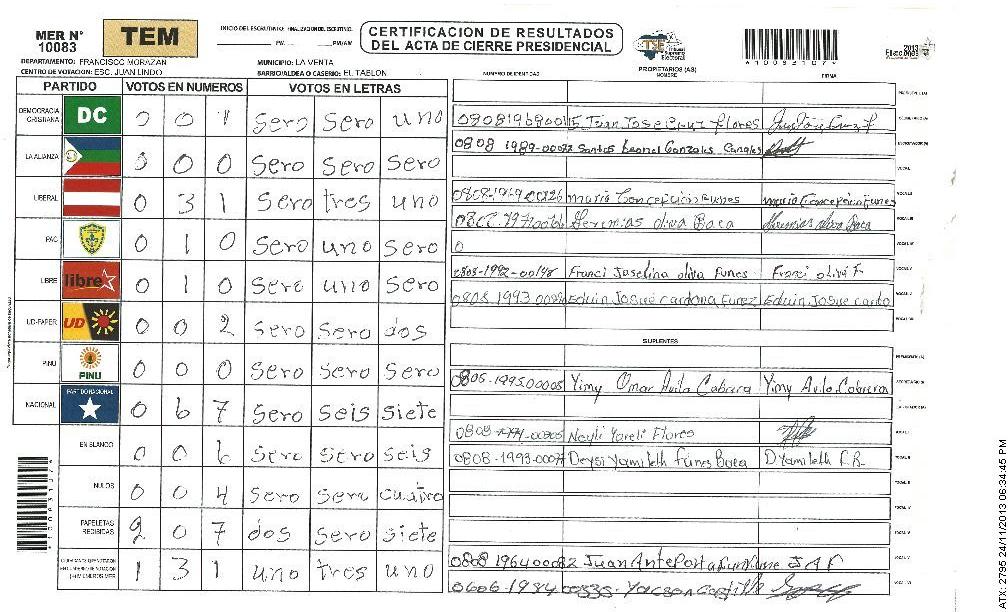 MER N° 10083
TEM
CERTIFICACION DE RESULTADOS
DEL ACTA DE CIERRE PRESIDENCIAL
TSE Tribunal Supremo Electoral
2013
DEPARTAMENTO: FRANCISCO MORAZAN
MUNICIPIO: LA VENTA
CENTRO DE VOTACION: ESC. JUAN LINDO
BARRIO/ALDEA O CASERIO: EL TABLON
NUMERO DE IDENTIDAD PROPIETARIOS (AS) NOMBRE FIRMA
PARTIDO VOTOS EN NUMEROS VOTOS EN LETRAS
DEMOCRACIA CRISTIANA DC 0 0 1 Sero Sero uno
LA ALIANZA 0 0 0 Sero Sero Sero
LIBERAL 0 3 1 Sero tres uno
PAC 0 1 0 Sero uno Sero
LIBRE libre 0 1 0 Sero uno Sero
UD-FAPER UD 0 0 2 Sero Sero dos
PINU PINU 0 0 0 Sero Sero Sero
NACIONAL PARTIDO NACIONAL 0 6 7 Sero Seis Siete
EN BLANCO 0 0 6 Sero Sero Seis
NULOS 0 0 4 Sero Sero Cuatro
PAPELETAS RECIBIDAS 2 0 7 dos Sero Siete
1 3 1 uno tres uno
Juan Jose Cruz Flores
Santos Leonel Gonzales Canales
maria Concepcion Funes maria Concepcion Funes
Jeremias oliva Baca Jeremias oliva Baca
0
0808-1992-00148 Franci Joselina oliva Funes Franci oliva F
Eduin Josue cardona Funez Eduin Josue cardo
SUPLENTES
0805-1995-00005 Yimy Omar Avila Cabrera Yimy Avila Cabrera
Neyli Yareli Flores
Deysi Yamileth Funes Baca D Yamileth F.B.
ATX: 2795 24/11/2013 06:34:45 PM